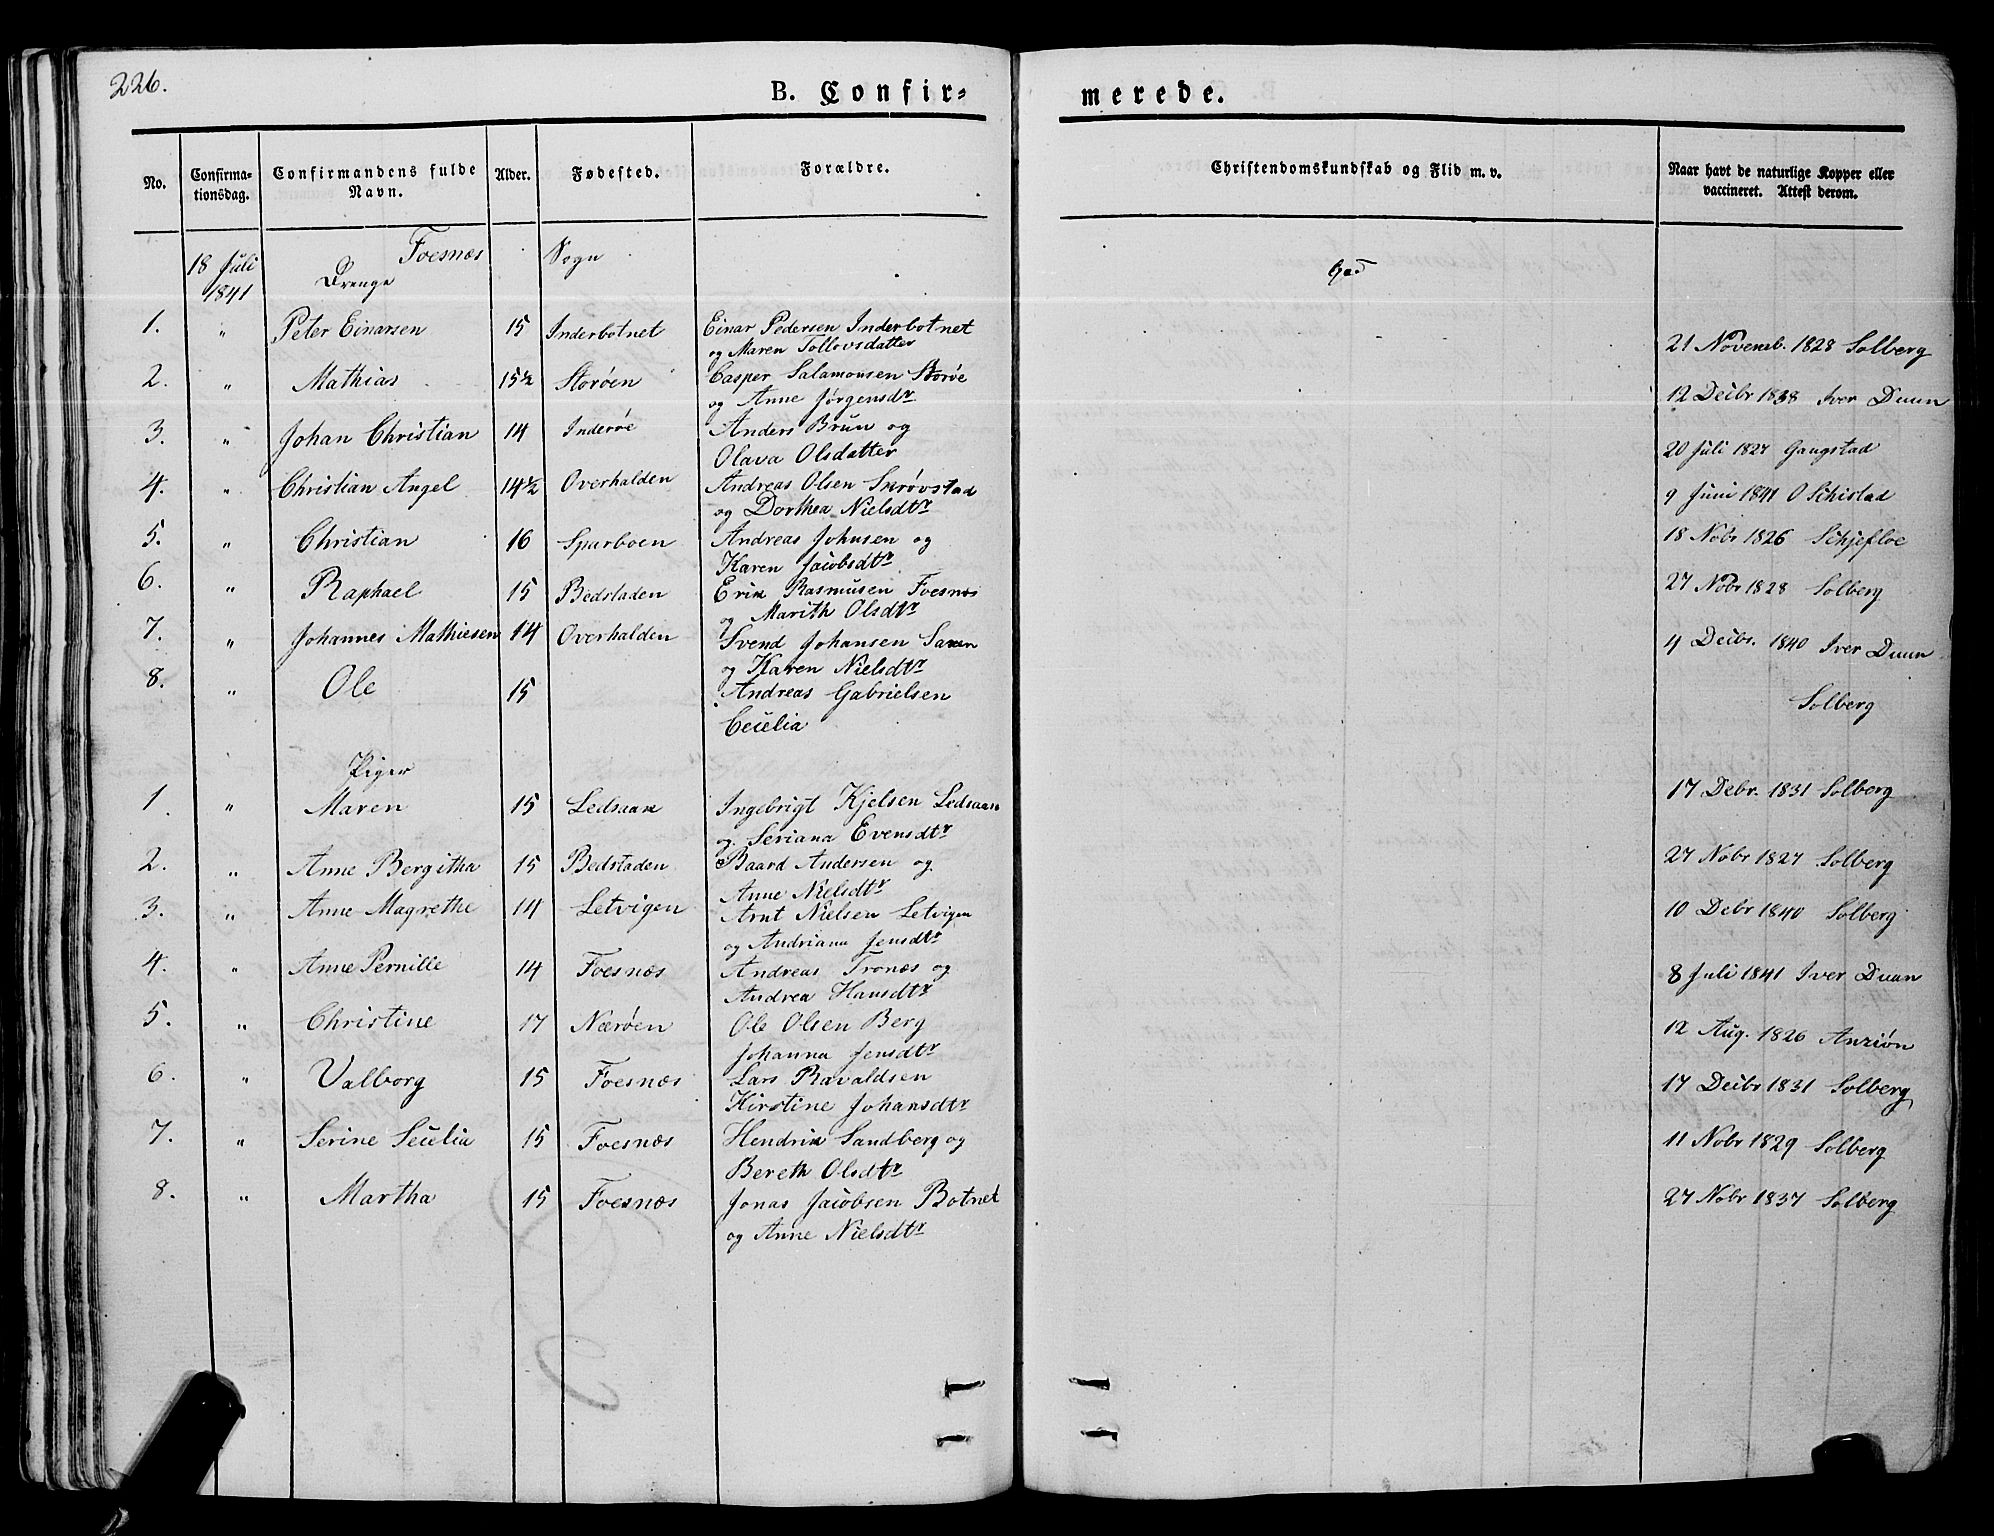 226.
B. Confir-
merede.
No. Confirma-tionsdag. Confirmandens fulde Navn. Alder. Fødested. Forældre. Christendomskundskab og Flid m. v. Naar havt de naturlige Kopper eller vaccineret. Attest derom.
Foesnæs Sogn
18 Juli 1841 Drenge God
1. " Peter Einarsen 15 Inderbotnet Einar Pedersen Inderbotnet 21 Novemb. 1828 Solberg
og Maren Tollovsdatter
2. " Mathias 15½ Storøen Casper Salamonsen Storøe 12 Decbr 1838 Iver Duun
og Anne Jørgensdtr
3. " Johan Christian 14 Inderøe Anders Brun og 20 Juli 1827 Gangstad
Olava Olsdatter
4. " Christian Angel 14½ Overhalden Andreas Olsen Skrøvstad 9 Juni 1841 O Schistad
og Dorthea Nielsdtr
5. " Christian 16 Sparboen Andreas Johnsen og 18 Nobr 1826 Schjefloe
Karen Jacobsdtr
6. " Raphael 15 Bedstaden Erik Rasmusen Foesnæs 27 Nobr 1828 Solberg
og Marith Olsdtr
7. " Johannes Mathiesen 14 Overhalden Svend Johansen Saxen 4 Decbr. 1840 Iver Duun
og Karen Nielsdtr
8. " Ole 15 Andreas Gabrielsen Solberg
Cecelia
Piger
1. " Maren 15 Ledsaan Ingebrigt Kjelsen Ledsaan 17 Debr. 1831 Solberg
og Seriana Evensdtr
2. " Anne Bergitha 15 Bedstaden Baard Andersen og 27 Nobr 1827 Solberg
Anne Nielsdtr
3. " Anne Magrethe 14 Letvigen Arnt Nielsen Letvigen 10 Debr 1840 Solberg
og Andriana Jensdtr
4. " Anne Pernille 14 Foesnæs Andreas Tronæs og 8 Juli 1841 Iver Duun
Andrea Hansdtr
5. " Christine 17 Nærøen Ole Olsen Berg 12 Aug. 1826
Johanna Jensdtr
6. " Valborg 15 Foesnæs Lars Ravaldsen 17 Decbr 1831 Solberg
Kirstine Johansdtr
7. " Serine Secelia 15 Foesnæs Hendrik Sandberg og 11 Nobr 1829 Solberg
Bereth Olsdtr
8. " Martha 15 Foesnæs Jonas Jacobsen Botnet 27 Nobr 1837 Solberg
og Anne Nielsdtr